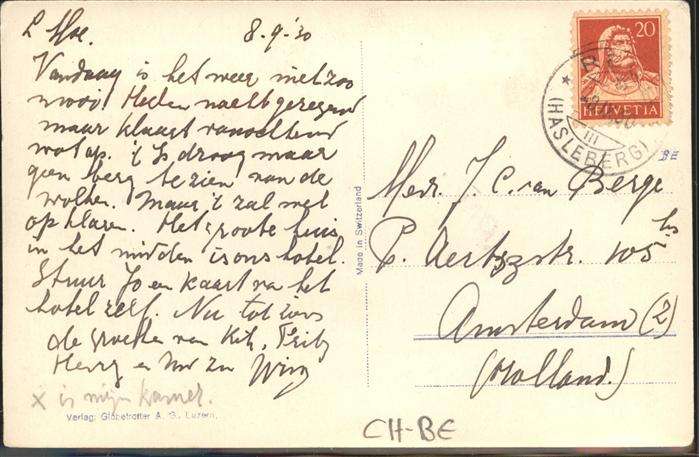 L Moe.
8-9-'30
Vandaag is het weer niet zoo
mooi Heden nacht geregend
maar klaart vanochtend
wat op. 't Is droog maar
geen berg te zien van de
wolken. Maar 't zal wel
opklaren. Het groote huis
in het midden is ons hotel.
Stuur Jo en kaart van het
hotel zelf. Nu tot ziens
de groeten van Fritz
Herry en
x is mijn kamer.
Verlag: Globetrotter A. G., Luzern.
Made in Switzerland
20
HELVETIA
(HASLEBERG)
III
BE
Mevr. J. C. van Berge
P. Aertszstr. 105 hs
Amsterdam (2)
(Holland.)
CH-BE